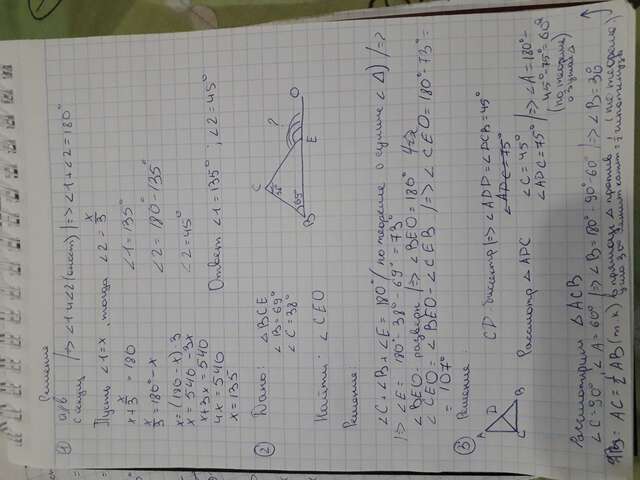 Решение
① a∥b
с секущ |=> ∠1 и ∠2 (одност) |=> ∠1+∠2=180°
Пусть ∠1=x, тогда ∠2 = x/3
x + x/3 = 180
x/3 = 180° - x
x = (180 - x)·3
x = 540 - 3x
x + 3x = 540
4x = 540
x = 135
∠1 = 135°
∠2 = 180° - 135°
∠2 = 45°
Ответ ∠1 = 135° ; ∠2 = 45°
② Дано: ∆BCE
∠B = 69°
∠C = 38°
Найти: ∠CEO
C
38°
69°
B
?
E
O
Решение
∠C + ∠B + ∠E = 180° (по теореме о сумме ∠ ∆) |=>
|=> ∠E = 180° - 38° - 69° = 73°
∠BEO - разверн |=> ∠BEO = 180°
∠CEO = ∠BEO - ∠CEB |=> ∠CEO = 180° - 73° =
= 107°
③ Решение
A
D
C
B
CD - биссектр |=> ∠ADP = ∠DCB = 45°
∠ADC = 75°
Рассмотр ∆APC
∠C = 45°
∠ADC = 75° |=> ∠A = 180° -
45° - 75° = 60°
(по теореме)
о сумме ∆
Рассмотрим ∆ACB
∠C = 90°, ∠A = 60° |=> ∠B = 180° - 90° - 60° |=> ∠B = 30°
AC = ½ AB (т.к) в прямоуг ∆ против
угла 30° лежит катет = ½ гипотенузы
(по теореме)